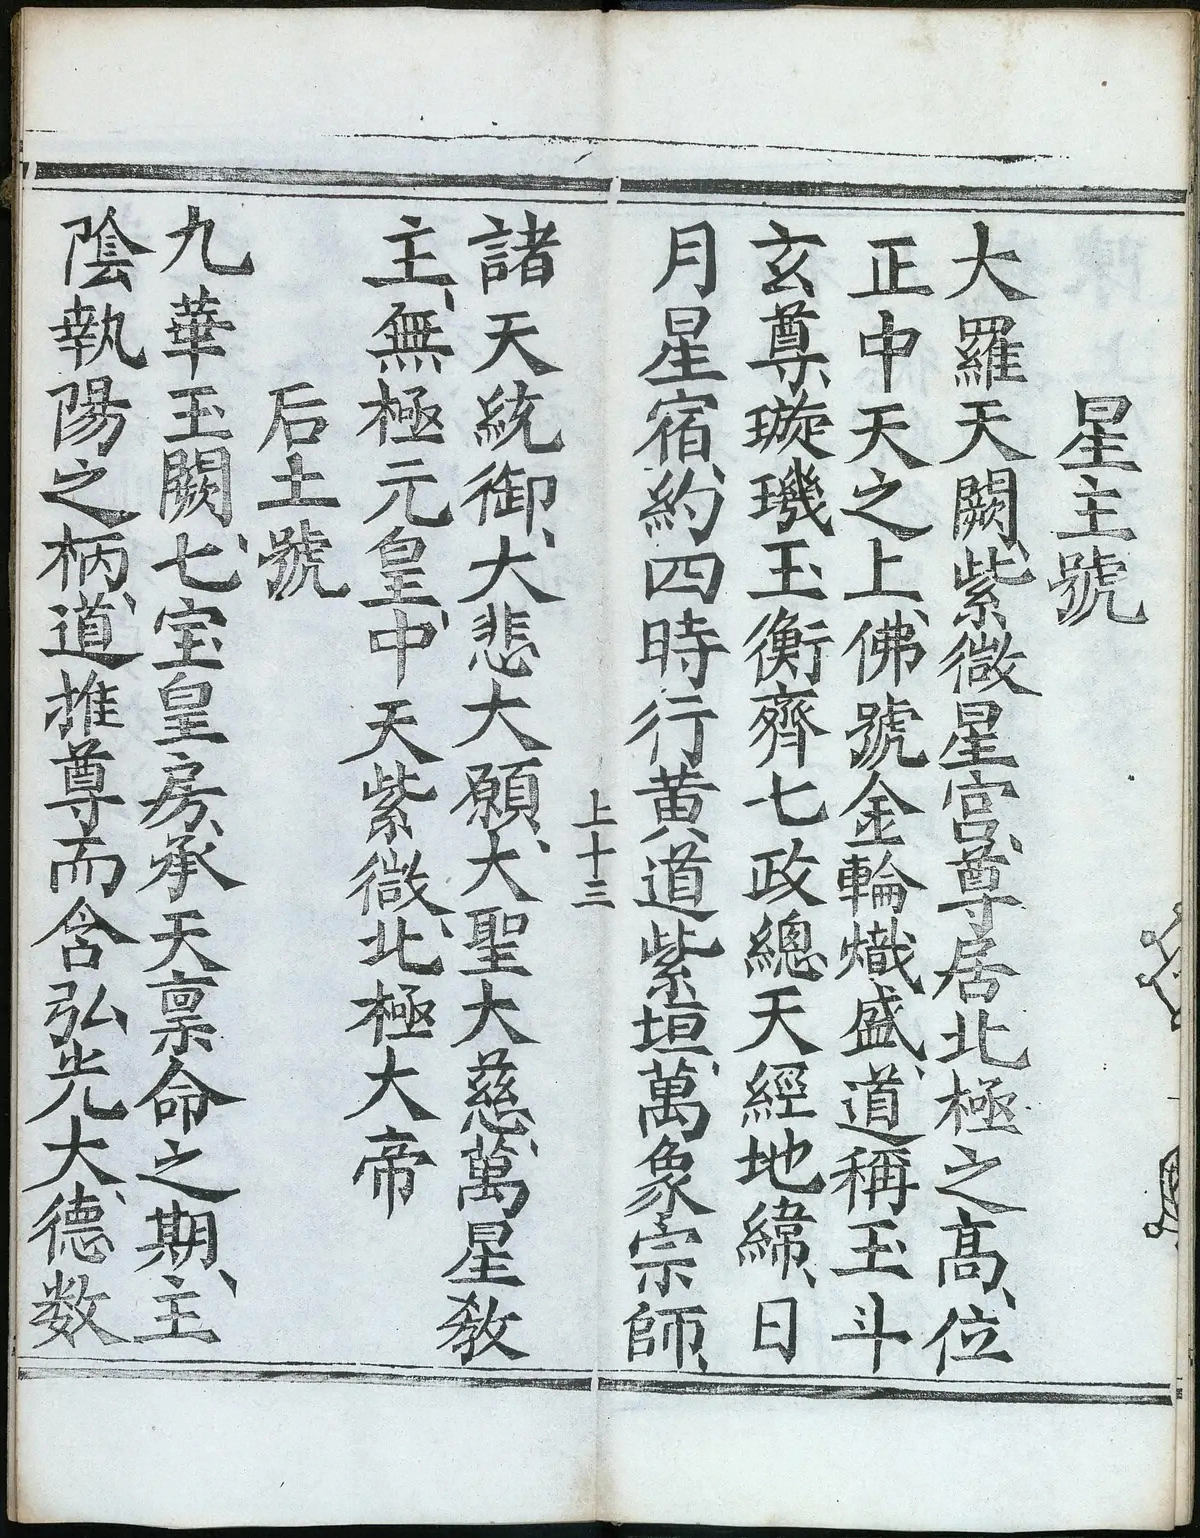 星主號
大羅天闕、紫微星宮、尊居北極之高、位
正中天之上、佛號金輪熾盛、道稱玉斗
玄尊、璇璣玉衡齊七政總天經地緯、日
月星宿、約四時行黃道紫垣、萬象宗師、
上十三
諸天統御、大悲大願、大聖大慈、萬星教
主、無極元皇、中天紫微、北極大帝
后土號
九華玉闕、七宝皇房、承天禀命之期、主
陰執陽之柄、道推尊而含弘光大、德数